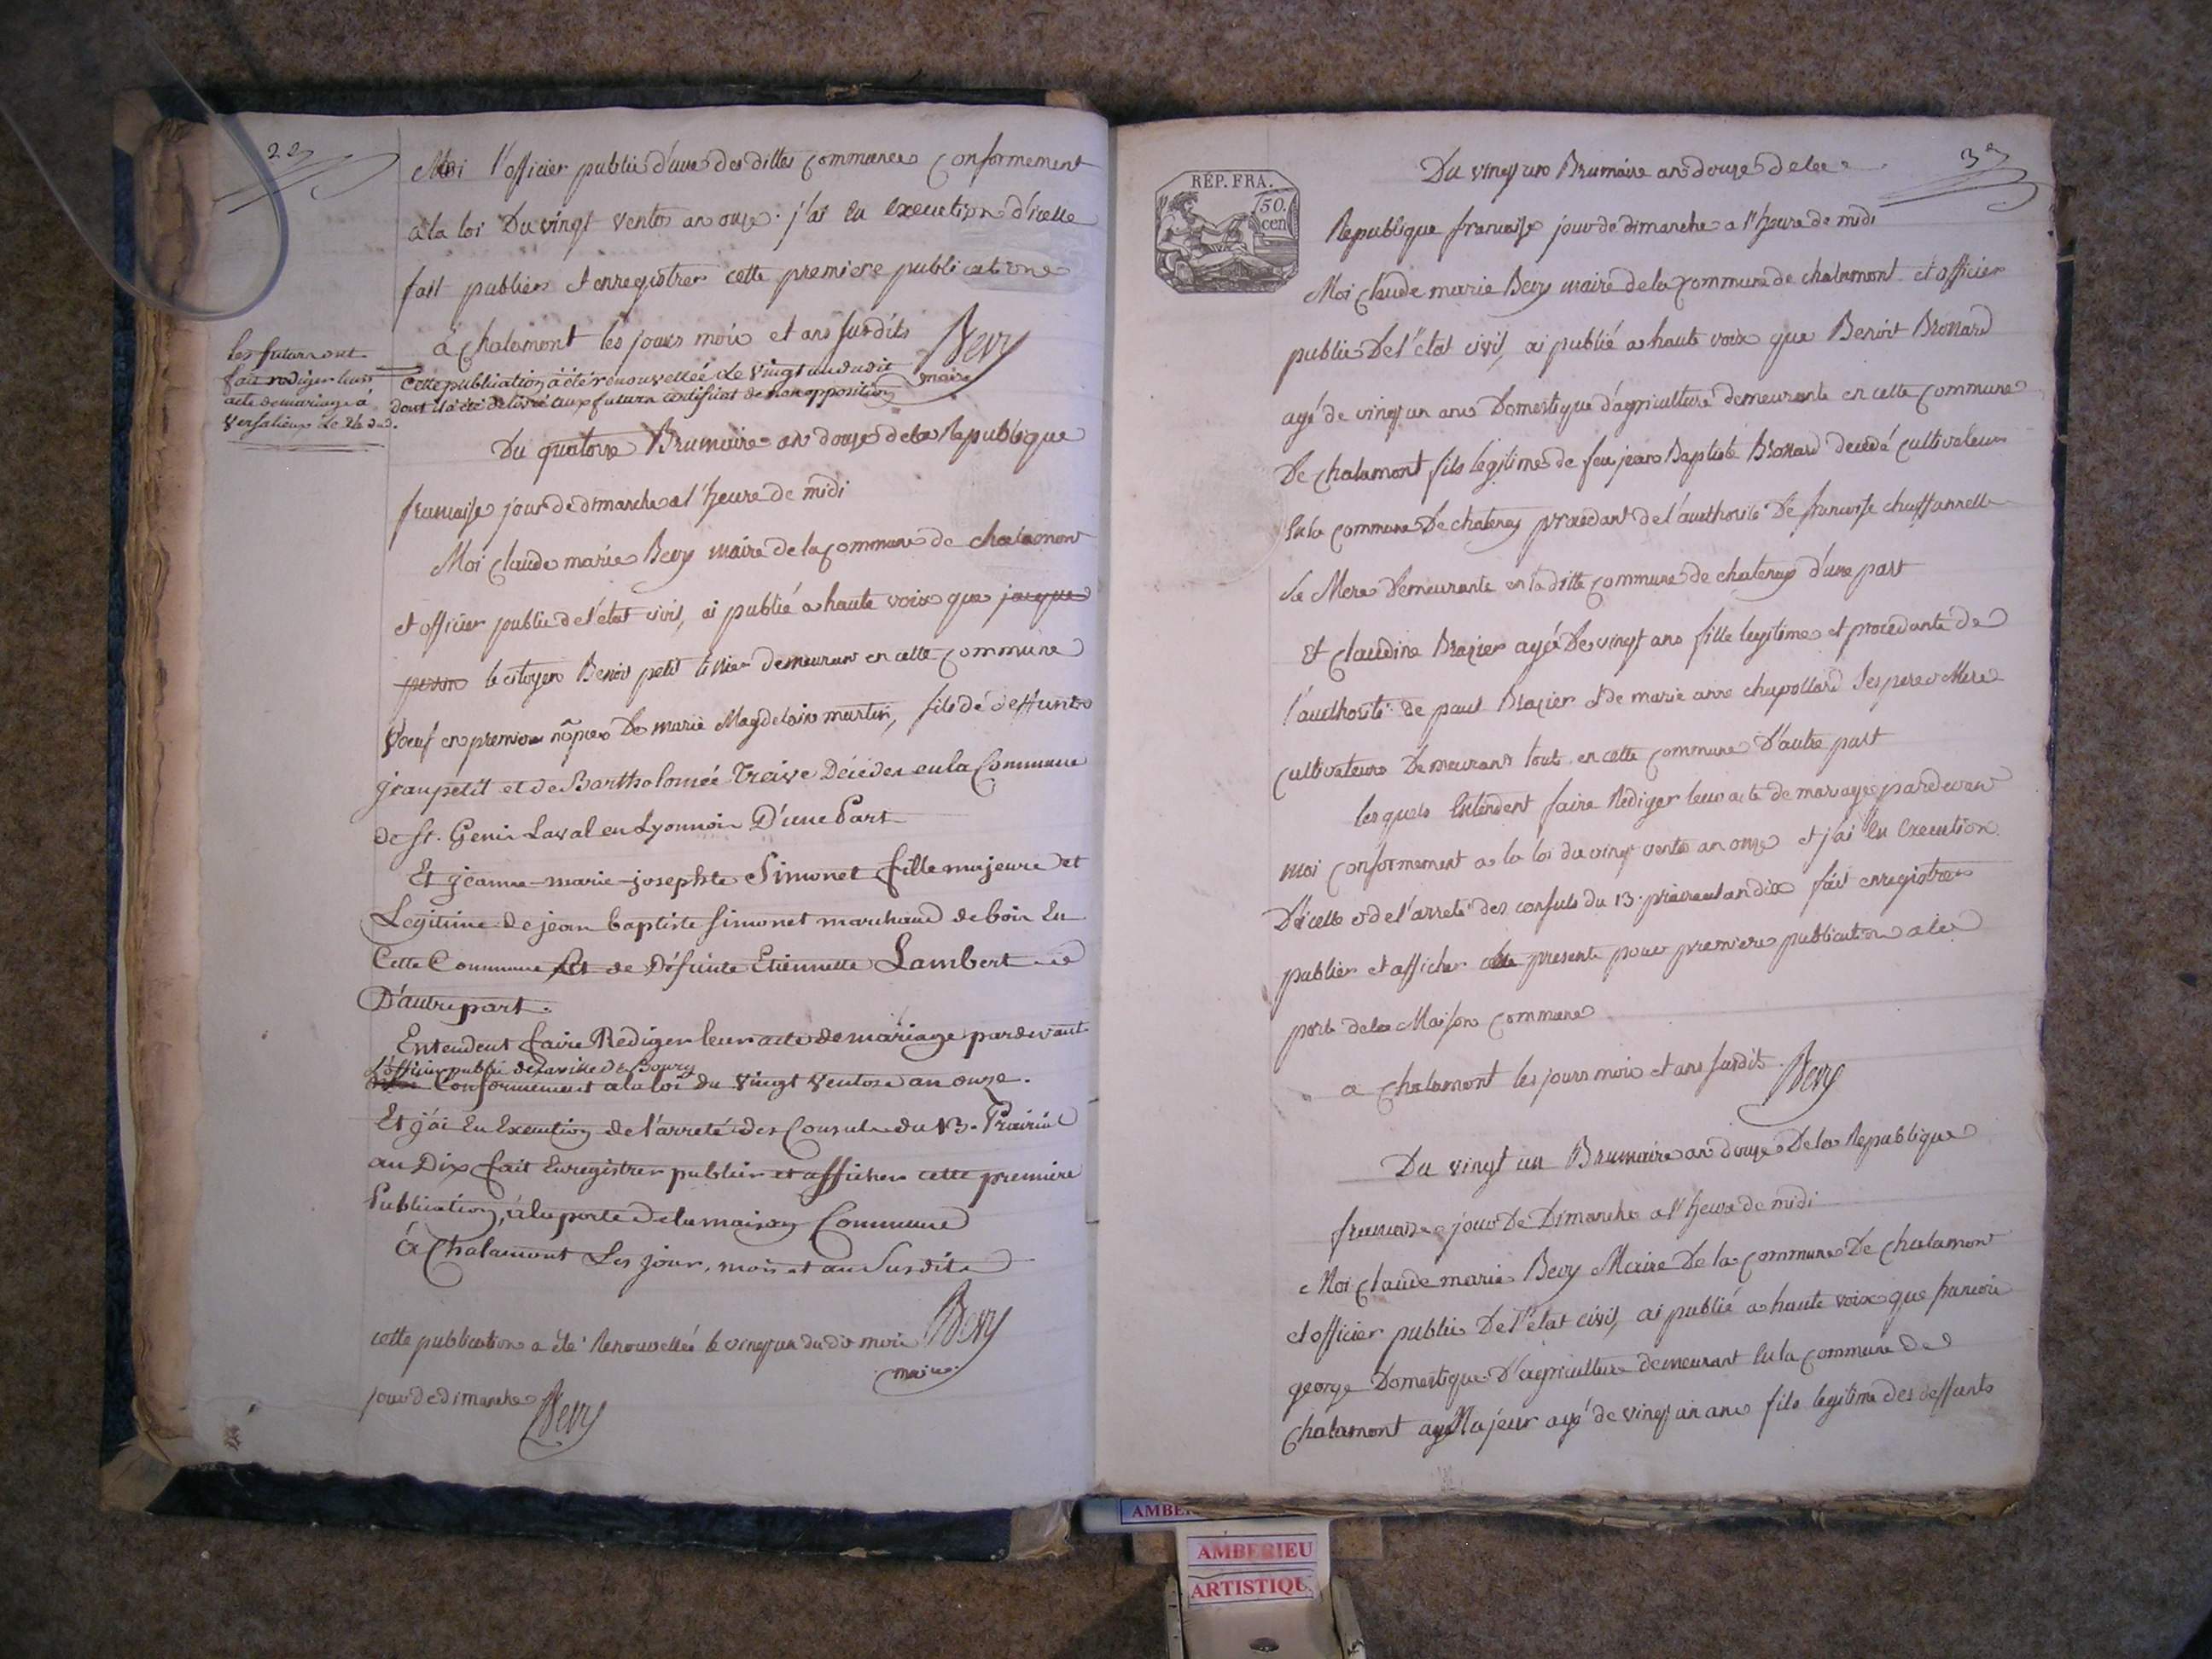 22
Moi l'officier public d'une des dittes communes conformement
a la loi du vingt ventos an onze. j'ai en execution d'icelle
fait publier et enregistrer cette premiere publication
a chalamont les jours mois et ans susdits Bevy
maire
cette publication à été renouvellée Le vingt un dudit
dont il a été délivré aux futurs certificat de non opposition
les futurs ont
fait rediger leur
acte de mariage à
Versalieux Le 26 dud.
Du quatorze Brumaire an douze de la Republique
francaise jour de dimanche a l'heure de midi
Moi claude marie Bevy maire de la commune de chalamont
et officier public de l'état civil, ai publié a haute voix que jacque
perrin le citoyen Benoit petit demeurant en cette commune
Voeuf en premier nopces De marie Magdelaine martin, fils de deffunts
jean petit et de Bartholomée Treive Décédés en la Commune
de St. Genis Laval en Lyonnois D'une Part
Et jeanne-marie-josephte Simonet fille majeure et
Legitime de jean baptiste Simonet marchand de bois En
Cette Commune Et de Défunte Etiennette Lambert
D'autre part.
Entendent faire Rediger leur acte de mariage pardevant
L'officier public de la ville de Bourg
Conformement a la loi du Vingt Ventose an onze.
Et j'ai En Execution de l'arreté des Consuls du 13. Prairial
an Dix fait Enregistrer publier et afficher cette premiere
Publication, à la porte de la maison Commune
à Chalamont Les jour, mois et an Susdits
Bevy
maire
cette publication a été Renouvellée le vingt un du dit mois
jour de dimanche Bevy
3e
RÉP. FRA.
50.
cen
Du vingt un Brumaire an douze de la
Republique francaise jour de dimanche a l'heure de midi
Moi claude marie Bevy maire de la commune de chalamont et officier
public De l'état civil, ai publié a haute voix que Benoit Brossard
agé de vingt un ans Domestique d'agriculture demeurante en cette commune
De chalamont fils legitime de feu jean Baptiste Brossard decedé cultivateur
En la commune De chatenay procedant de l'authorité De francoise chaffannelle
Sa Mere Demeurante en la ditte commune de chatenay d'une part
Et claudine Brazier agée De vingt ans fille legitime et procedante de
l'authorité de paul Brazier et de marie anne chapollard Ses pere & Mere
cultivateurs Demeurans tout en cette commune D'autre part
lesquels Entendent faire Rediger leur acte de mariage pardevant
moi conformement a la loi du vingt ventos an onze et j'ai En Execution
D'icelle et de l'arreté des consuls du 13. prairial an dix fait enregistrer
publier et afficher cette presente pour premiere publication a la
porte de la Maison commune
a chalamont les jours mois et ans susdits Bevy
Du vingt un Brumaire an douze De la Republique
francaise jour De Dimanche a l'heure de midi
Moi claude marie Bevy Maire De la commune De chalamont
et officier public De l'état civil, ai publié a haute voix que francois
george Domestique D'agriculture demeurant En la commune de
chalamont Majeur agé de vingt un ans fils legitime des deffunts
AMBE
AMBERIEU
ARTISTIQU